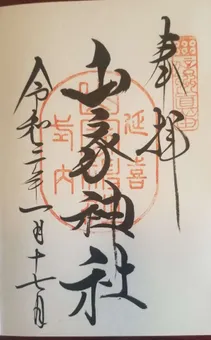 奉拝
延喜式内
山家神社
令和二年一月十七日